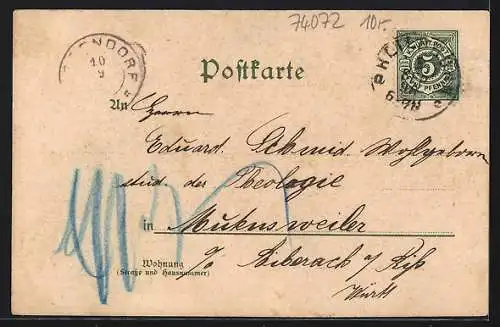 74072 10r.
10
9
5
Postkarte
An Herrn
Eduard Schmid Wohlgeborn
stud. der Theologie
in Mukensweiler
Wohnung
(Straße und Hausnummer)
o/ Biberach a/ Riß
Württ